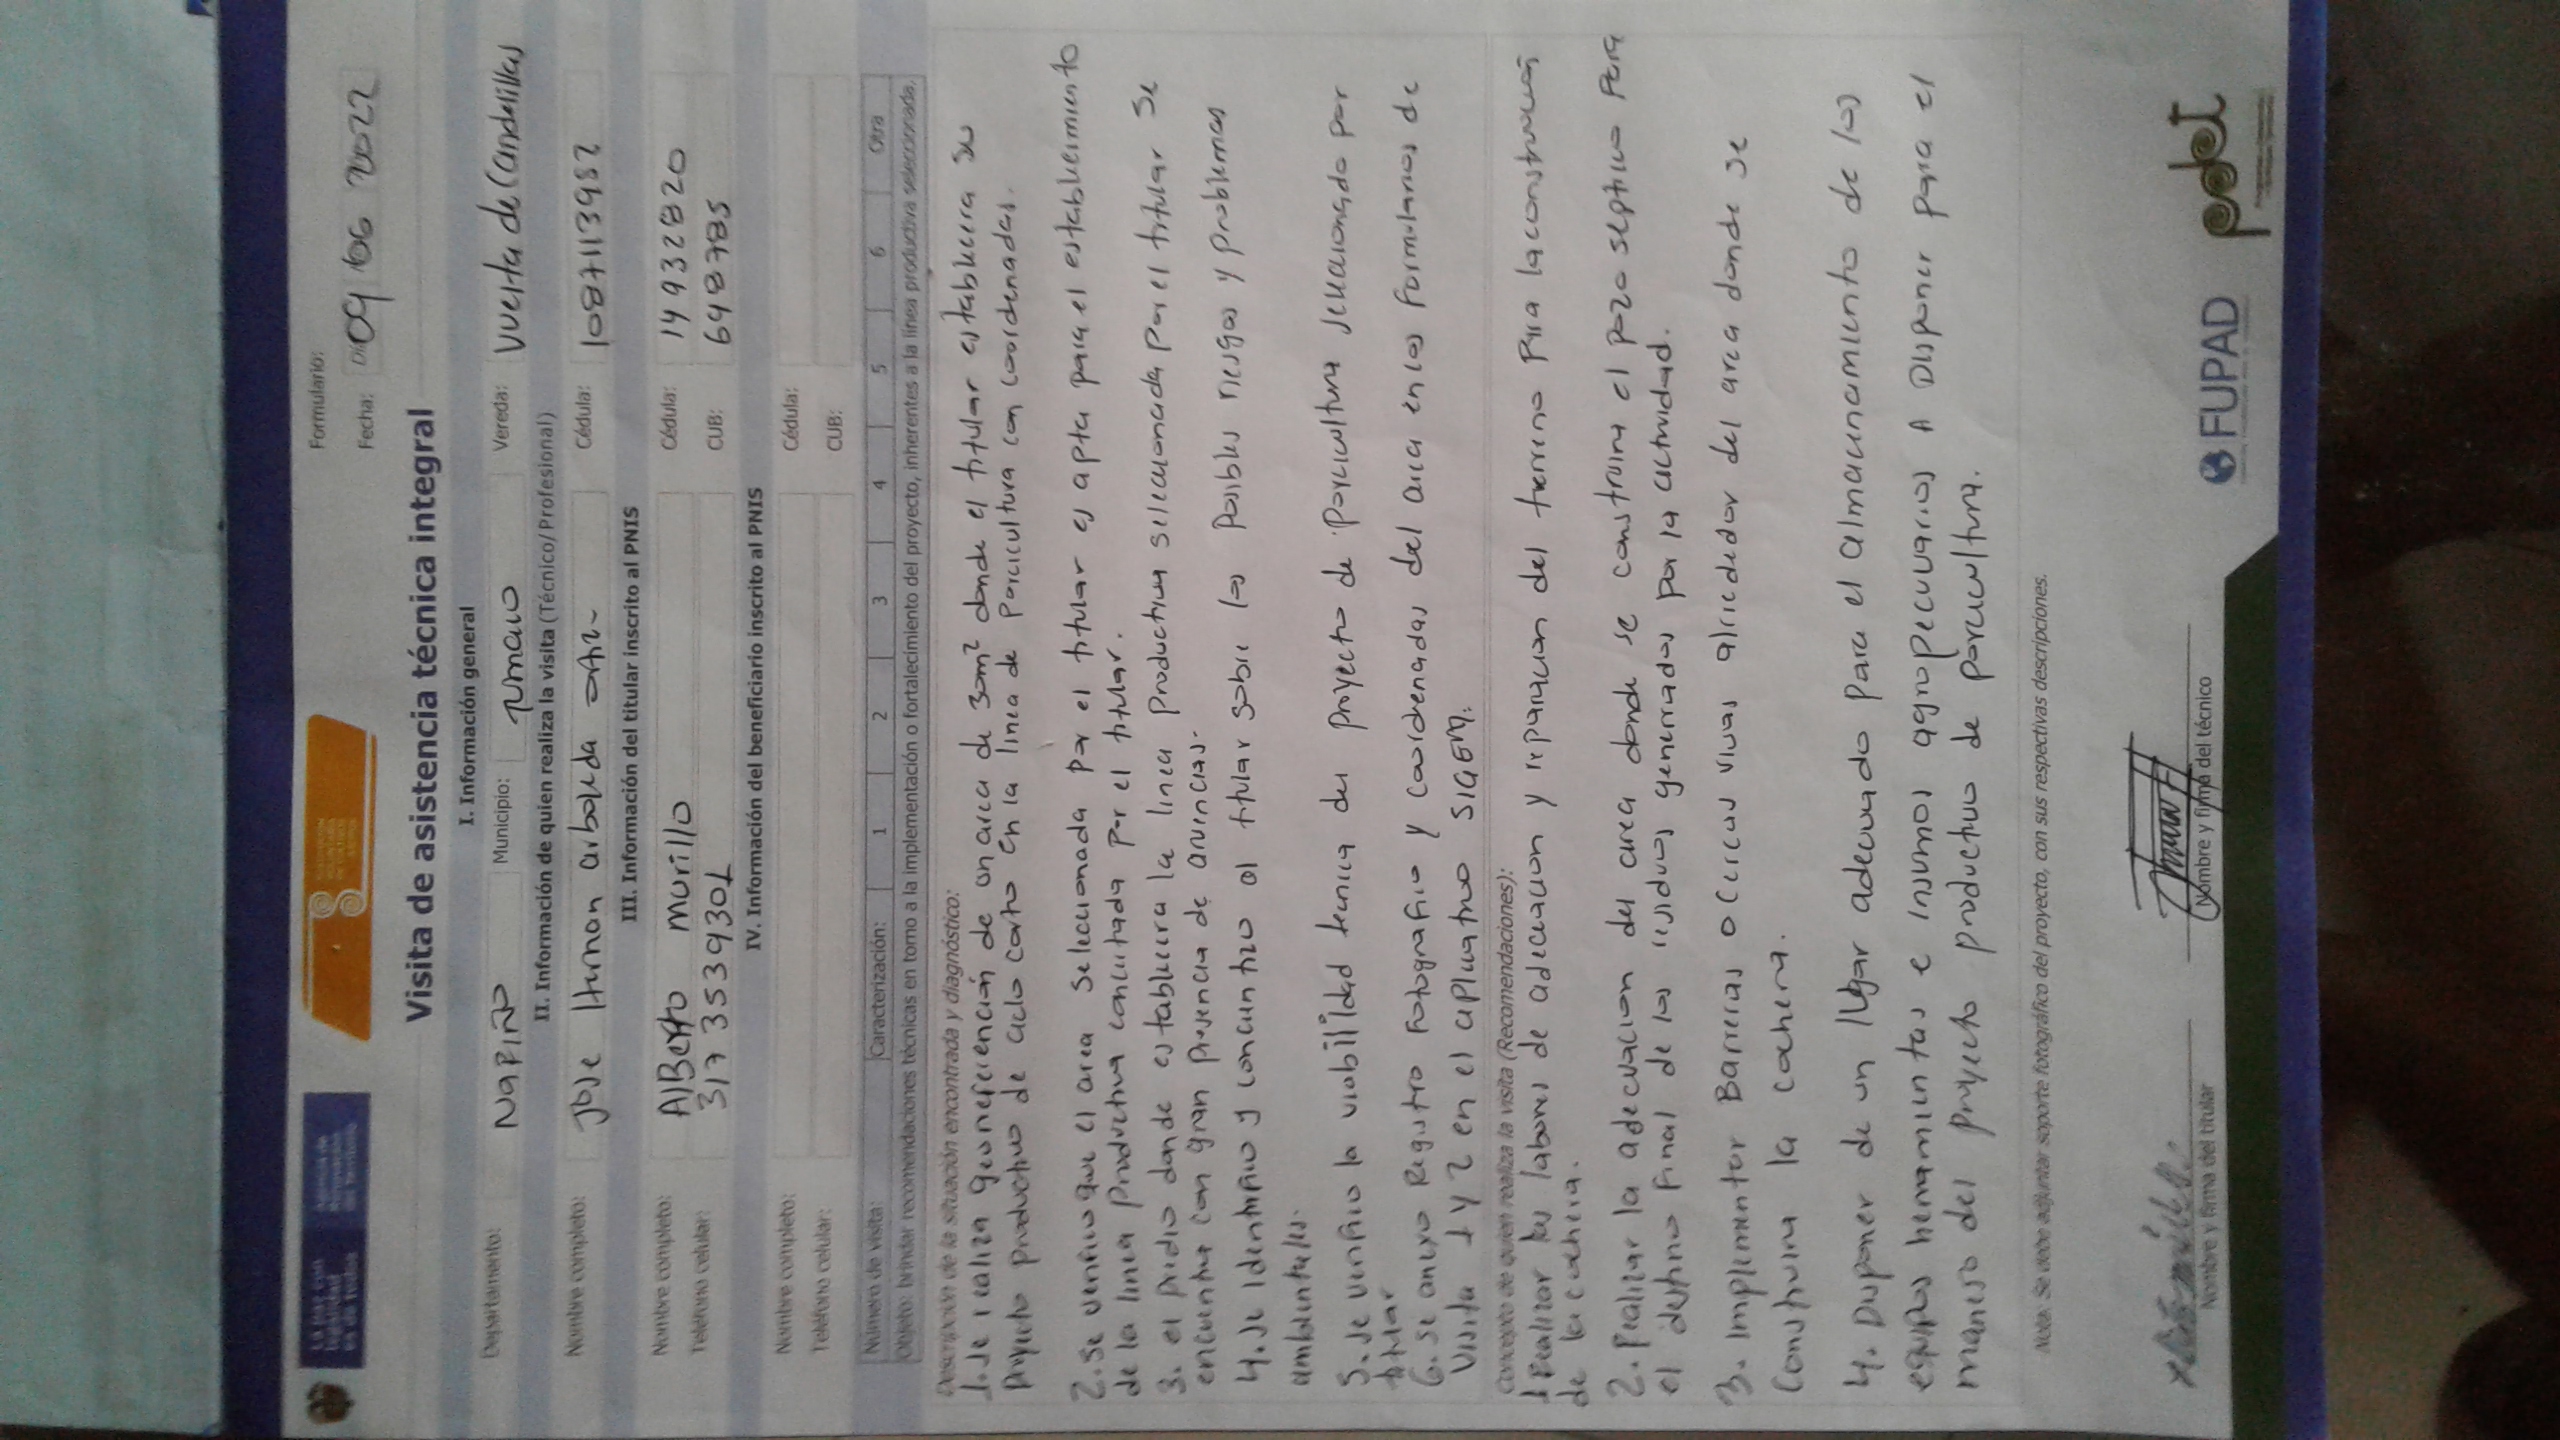 Formulario:
Fecha: 09 06 2022
Visita de asistencia técnica integral
I. Información general
Departamento: Nariño Municipio: Tumaco Vereda: Vuelta de Candelillas
II. Información de quien realiza la visita (Técnico/Profesional)
Nombre completo: Jose Hernan arboleda Cédula: 1087113952
III. Información del titular inscrito al PNIS
Nombre completo: AlBerto Murillo Cédula: 14932820
Teléfono celular: 317 3539301 CUB: 648785
IV. Información del beneficiario inscrito al PNIS
Nombre completo: Cédula:
Teléfono celular: CUB:
Número de visita: Caracterización: 1 2 3 4 5 6 Otra
Objeto: brindar recomendaciones técnicas en torno a la implementación o fortalecimiento del proyecto, inherentes a la línea productiva seleccionada.
Descripción de la situación encontrada y diagnóstico:
1. se realiza georeferenciación de un area de 30m² donde el titular establecera su
proyecto productivo de ciclo corto en la linea de Porcicultura con coordenadas.
2. se verifico que el area seleccionada por el titular es apta para el establecimiento
de la linea productiva concertada por el titular.
3. el predio donde establecera la linea productiva seleccionada por el titular se
encuentra con gran presencia de
4. se identifico y concientizo al titular sobre los posibles riesgos y problemas
ambientales.
5. se verifico la viabilidad tecnica del proyecto de porcicultura seleccionado por
titular
6. se anexo Registro Fotografico y coordenadas del area en los formularios de
Visita 1 y 2 en el aplicativo SIGEM.
Concepto de quien realiza la visita (Recomendaciones):
1 Realizar las labores de adecuacion y reparacion del terreno para la construcción
de la cochera.
2. Realizar la adecuacion del area donde se construira el pozo septico para
el destino Final de los residuos generados por la actividad.
3. Implementar Barreras o Cercas vivas alrededor del area donde se
Construira la cochera.
4. Disponer de un lugar adecuado para el almacenamiento de los
equipos herramientas e insumos agropecuarios A Disponer para el
manejo del proyecto productivo de porcicultura.
Nota: Se debe adjuntar soporte fotográfico del proyecto, con sus respectivas descripciones.
Nombre y firma del titular Nombre y firma del técnico
FUPAD pdet